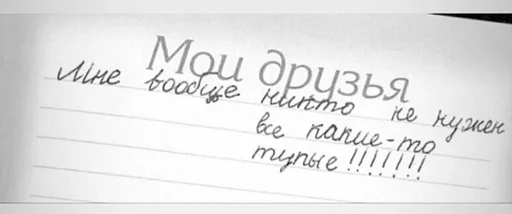 Мои друзья
Мне вообще никто не нужен
все какие-то
тупые!!!!!!!